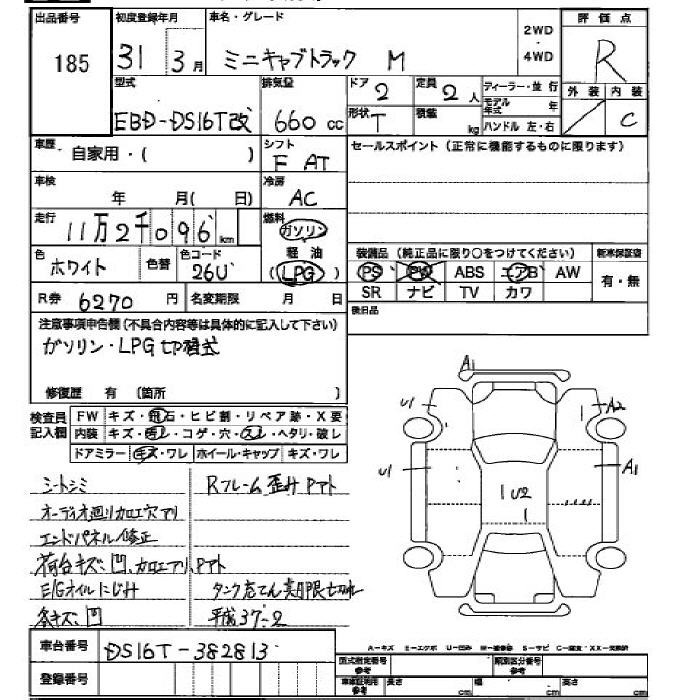 出品番号 初度登録年月 車名・グレード 2WD ・ 4WD 評価点
185 31 3月 ミニキャブトラック M R
型式 排気量 ドア 2 定員 2人 ディーラー・並行 外装 内装
モデル年式 年
EBD-DS16T改 660cc 形状 T 積載 kg ハンドル 左・右 C
車歴 自家用・( ) シフト F AT セールスポイント(正常に機能するものに限ります)
車検 年 月( 日) 冷房 AC
走行 11万2千096km 燃料 ガソリン
軽油
色 ホワイト 色替 色コード 26U (LPG) 装備品(純正品に限り○をつけてください) 新車保証書
PS PW ABS エアB AW 有・無
R券 6270円 名変期限 月 日 SR ナビ TV カワ
後日品
注意事項申告欄(不具合内容等は具体的に記入して下さい)
ガソリン・LPG切替式
修復歴 有 〔箇所 〕
検査員記入欄 FW キズ・飛石・ヒビ割・リペア跡・X要
内装 キズ・汚レ・コゲ・穴・スレ・ヘタリ・破レ
ドアミラー キズ・ワレ ホイール・キャップ キズ・ワレ
A1
U1 A2
U1 A1
U2
シートシミ Rフレーム歪みPアト
オーディオ廻り加工穴アリ
エンドパネル修正
荷台キズ、凹、加工アリ、Pアト
E/Gオイルにじみ タンク充てん期限切れ
各キズ凹 平成37-2
車台番号 DS16T-382813
登録番号
A-キズ E-エクボ U-凹み W-補修跡 S-サビ C-腐食・XX-交換済
型式指定番号 参考 類別区分番号 参考
車庫証明用 参考 長さ cm 幅 cm 高さ cm